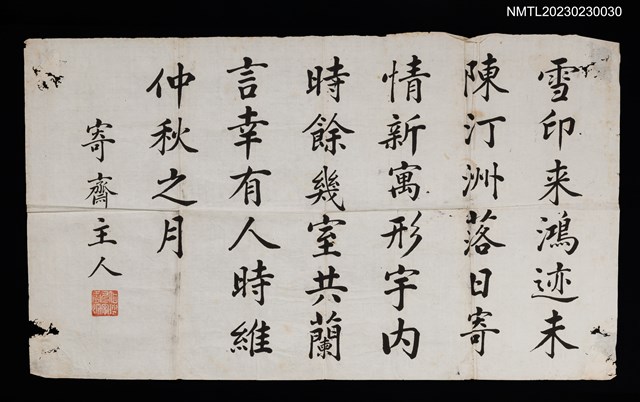 NMTL20230230030
雪印来鴻迹未
陳汀洲落日寄
情新寓形宇内
時餘幾室共蘭
言幸有人時維
仲秋之月
寄齋主人